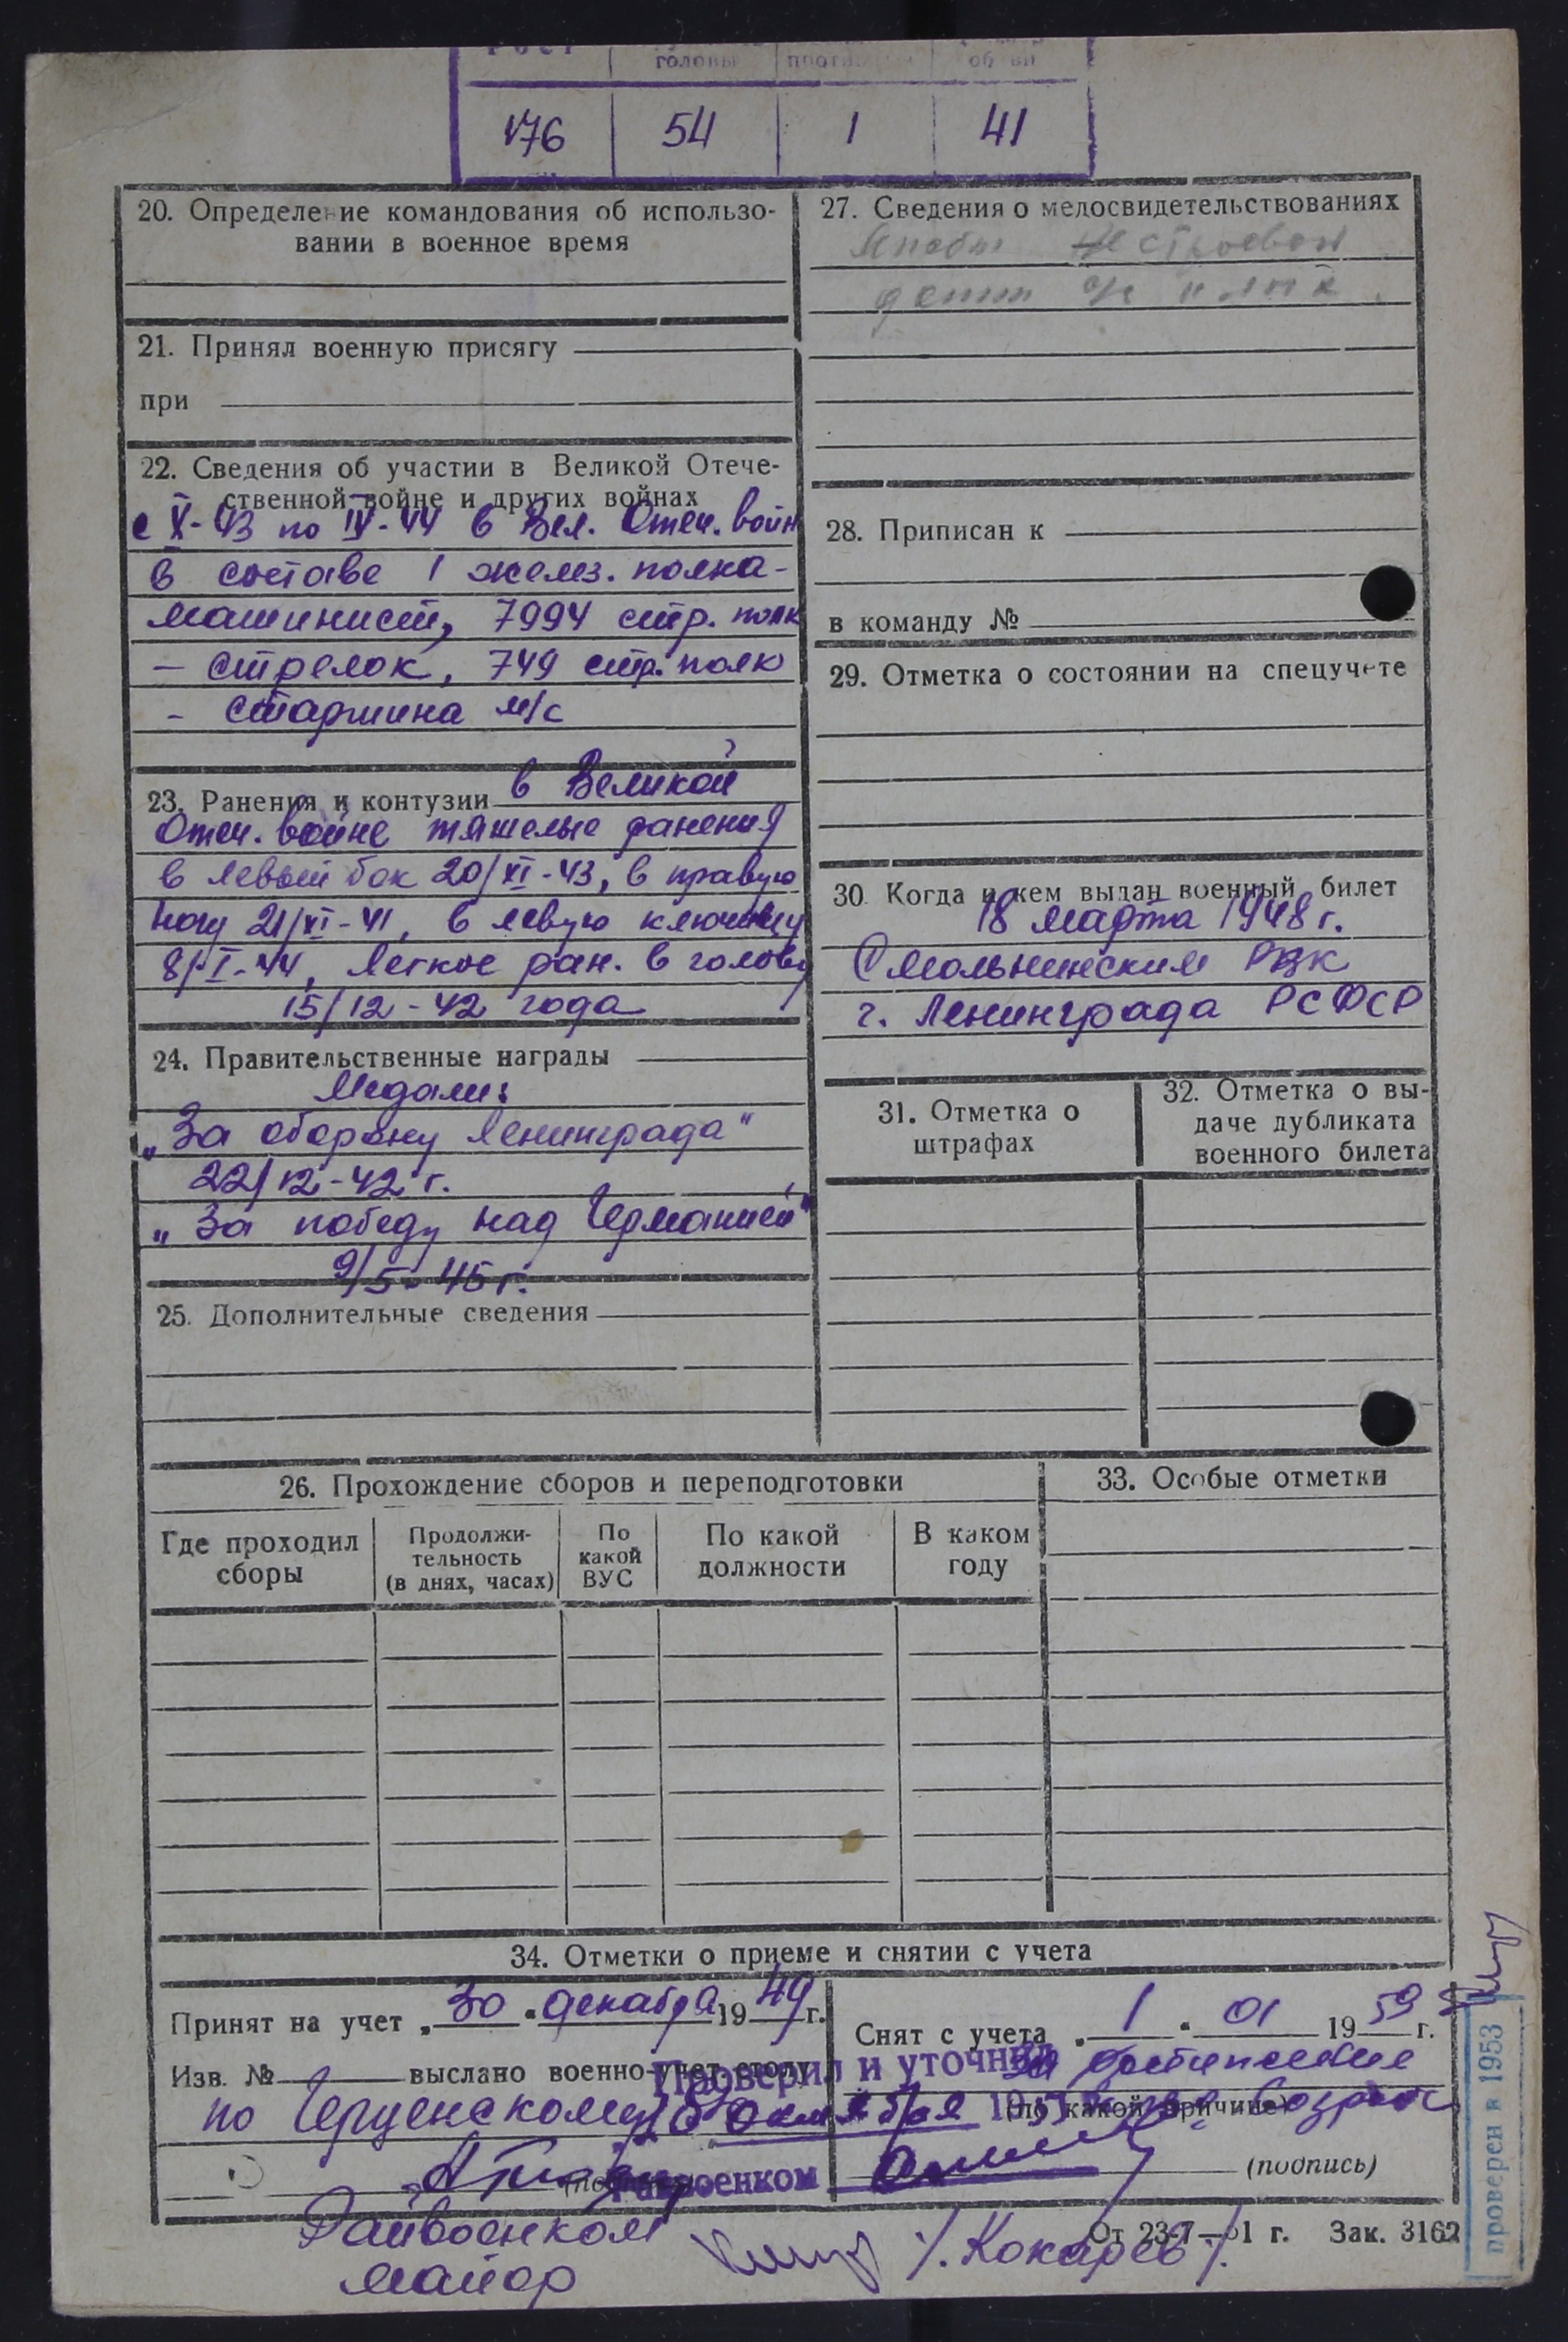 Рост головы
176 54 1 41
20. Определение командования об использо-
вании в военное время
21. Принял военную присягу
при
22. Сведения об участии в Великой Отече-
ственной войне и других войнах
с X-43 по IV-44 в Вел. Отеч. войн
в составе 1 желез. полка-
машинист, 7994 стр. полк
- стрелок, 749 стр. полк
- старшина м/с
23. Ранения и контузии в Великой
Отеч. войне тяжелые ранения
в левый бок 20/XI-43, в правую
ногу 21/XI-41, в левую ключицу
8/I-44, легкое ран. в голову
15/12-42 года
24. Правительственные награды
Медали:
„За оборону Ленинграда"
22/12-42 г.
„За победу над Германией"
9/5-45 г.
25. Дополнительные сведения
27. Сведения о медосвидетельствованиях
28. Приписан к
в команду №
29. Отметка о состоянии на спецучете
30. Когда и кем выдан военный билет
18 марта 1948 г.
Смольнинским РВК
г. Ленинграда РСФСР
31. Отметка о
штрафах
32. Отметка о вы-
даче дубликата
военного билета
26. Прохождение сборов и переподготовки
Где проходил
сборы
Продолжи-
тельность
(в днях, часах)
По
какой
ВУС
По какой
должности
В каком
году
33. Особые отметки
34. Отметки о приеме и снятии с учета
Принят на учет „30" декабря 1949 г.
Изв. № выслано военно-учет. столу
по Герценскому
Райвоенком
майор /.Кокарев/.
Снят с учета „1" 01 1959 г.
(по какой причине) возраст
(подпись)
Проверил и уточнил
октября 195
Райвоенком
От 23-7-51 г. Зак. 3162
проверен в 1953